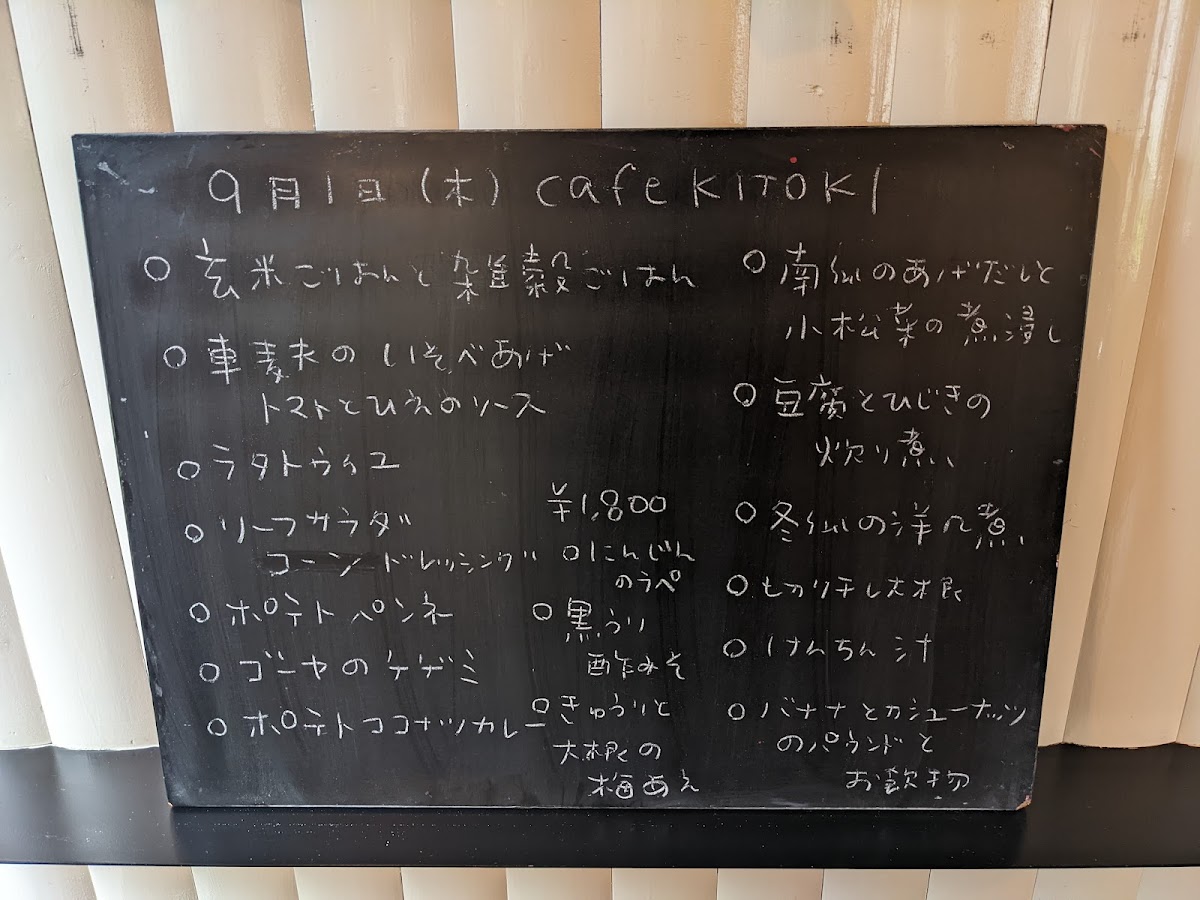 9月1日(木) cafe KITOKI
○ 玄米ごはんと雑穀ごはん
○ 車麦夫のいそべあげ
トマトとひえのソース
○ ラタトゥイユ
○ リーフサラダ
コーンドレッシング
○ ポテトペンネ
○ ゴーヤのケヂミ
○ ポテトココナツカレー
¥1,800
○ にんじん
のラペ
○ 黒うり
酢みそ
○ きゅうりと
大根の
梅あえ
○ 南瓜のあげだしと
小松菜の煮浸し
○ 豆腐とひじきの
炊り煮
○ 冬瓜の洋風煮
○ 切り干し大根
○ けんちん汁
○ バナナとカシューナッツ
のパウンドと
お飲物